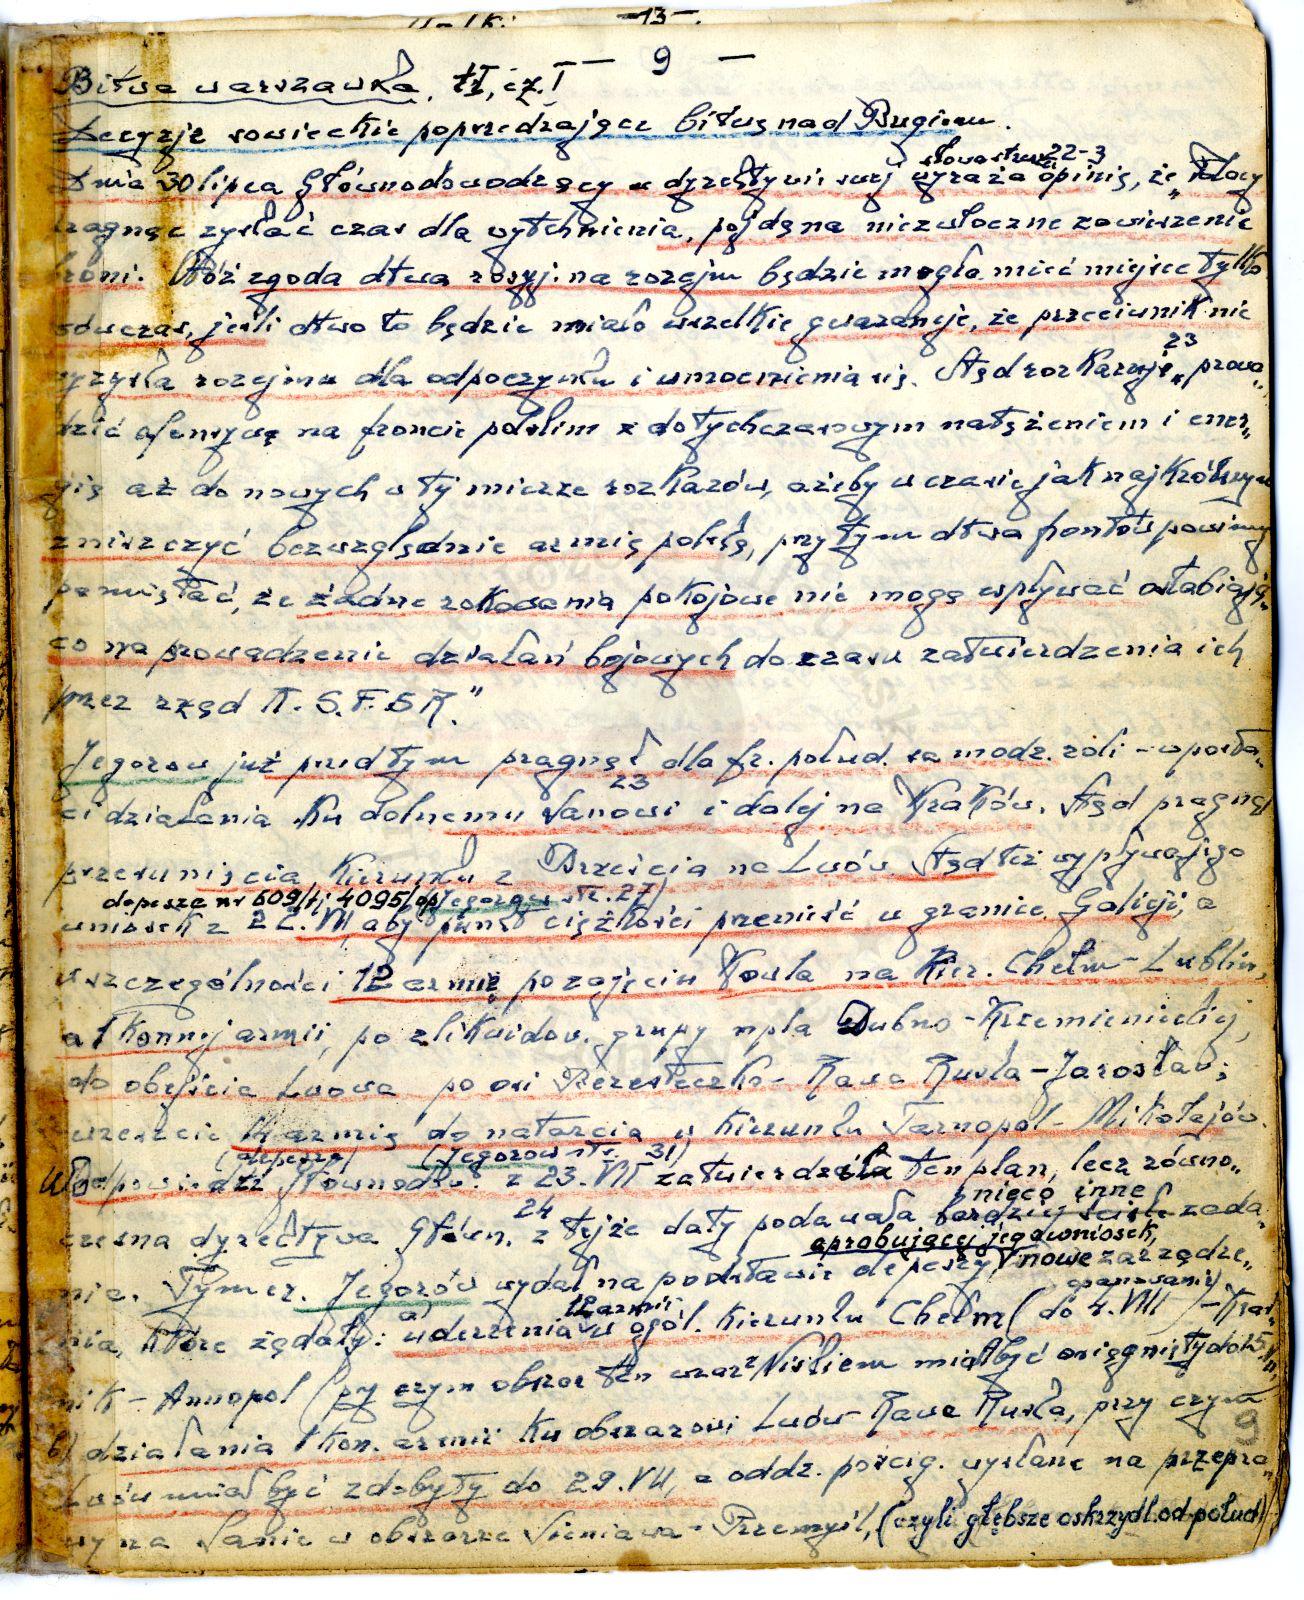 -13-.
- 9 -
Bitwa warszawska, tI, cz. I
Decyzje sowieckie poprzedzające bitwę nad Bugiem.
słowa str. 22-3
Dnia 30 lipca Głównodowodzący w dyrektywie swej wyraża opinię, że „Polacy
pragnąc zyskać czas dla wytchnienia, pójdą na niezwłoczne zawieszenie
broni. Otóż zgoda dtwa rosyj. na rozejm będzie mogła mieć miejsce tylko
wówczas, jeśli dtwo to będzie miało wszelkie gwarancje, że przeciwnik nie
23
wyzyska rozejmu dla odpoczynku i umocnienia się. Stąd rozkazuje „prowa„
dzić ofensywę na froncie polskim z dotychczasowym natężeniem i ener„
gią aż do nowych w tej mierze rozkazów, ażeby w czasie jak najkrótszym
zniszczyć bezwzględnie armię polską, przy tym dtwa frontów powinny
pamiętać, że żadne rokowania pokojowe nie mogą wpływać osłabiają„
co na prowadzenie działań bojowych do czasu zatwierdzenia ich
przez rząd R.S.F.S.R."
Jegorow już przedtym pragnął dla fr. połud. samodz. roli - w posta„
23
ci działania ku dolnemu Sanowi i dalej na Kraków. Stąd pragnął
przesunięcia kierunku z Brześcia na Lwów. Stąd też wypływa jego
depesza nr 609/tj 4095/op Jegorow str. 27)
wniosek z 22.VII aby punkt ciężkości przenieść w granice Galicji, a
w szczególności 12 armię po zajęciu Kowla na kier. Chełm - Lublin,
a 1 konnej armii, po zlikwidow. grupy npla Dubno - Krzemienieckiej,
do obejścia Lwowa po osi Beresteczko - Rawa Ruska - Jarosław;
wreszcie 14 armię do natarcia w kierunku Tarnopol - Mikołajów.
(depesza) (Jegorow str. 31)
W odpowiedzi Głównodow. z 23.VII zatwierdzała ten plan, lecz równo„
24 nieco inne
czesna dyrektywa Główn. z tejże daty podawała bardziej ścisłe zada„
aprobującej jego wniosek,
nia. Tymcz. Jegorów wydał na podstawie depeszy, nowe zarządze„
a) 12 armii opanowanie)
nia, które żądały: uderzenia w ogól. kierunku Chełm (do 4.VIII) - Kraś„
nik - Annopol (przy czym obszar ten wraz z Niskiem miał być osiągnięty do 15.VIII,
b) działania 1 kon. armii ku obszarowi Lwów - Rawa Ruska, przy czym
9
Lwów miał być zdobyty do 29.VII, a oddz. pościg. wysłane na przepra„
wy na Sanie w obszarze Sieniawa - Przemyśl, (czyli głębsze oskrzydl. od połud)